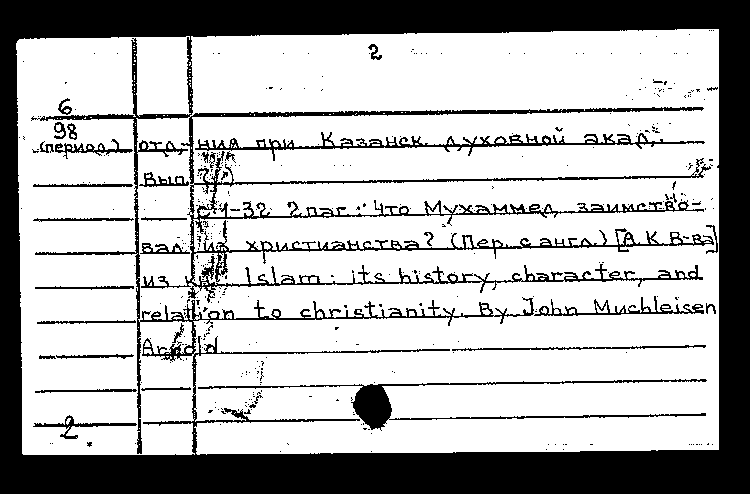 2
6
98
(период.) отд,- ния при Казанск. духовной акад,.
Вып.
с.1-32 2 паг.: Что Мухаммед, заимство-
вал из христианства? (Пер. с англ.) [А.К.В-ва]
из кн. Islam: its history, character, and
relation to christianity. By John Muchleisen
Arnold
2.